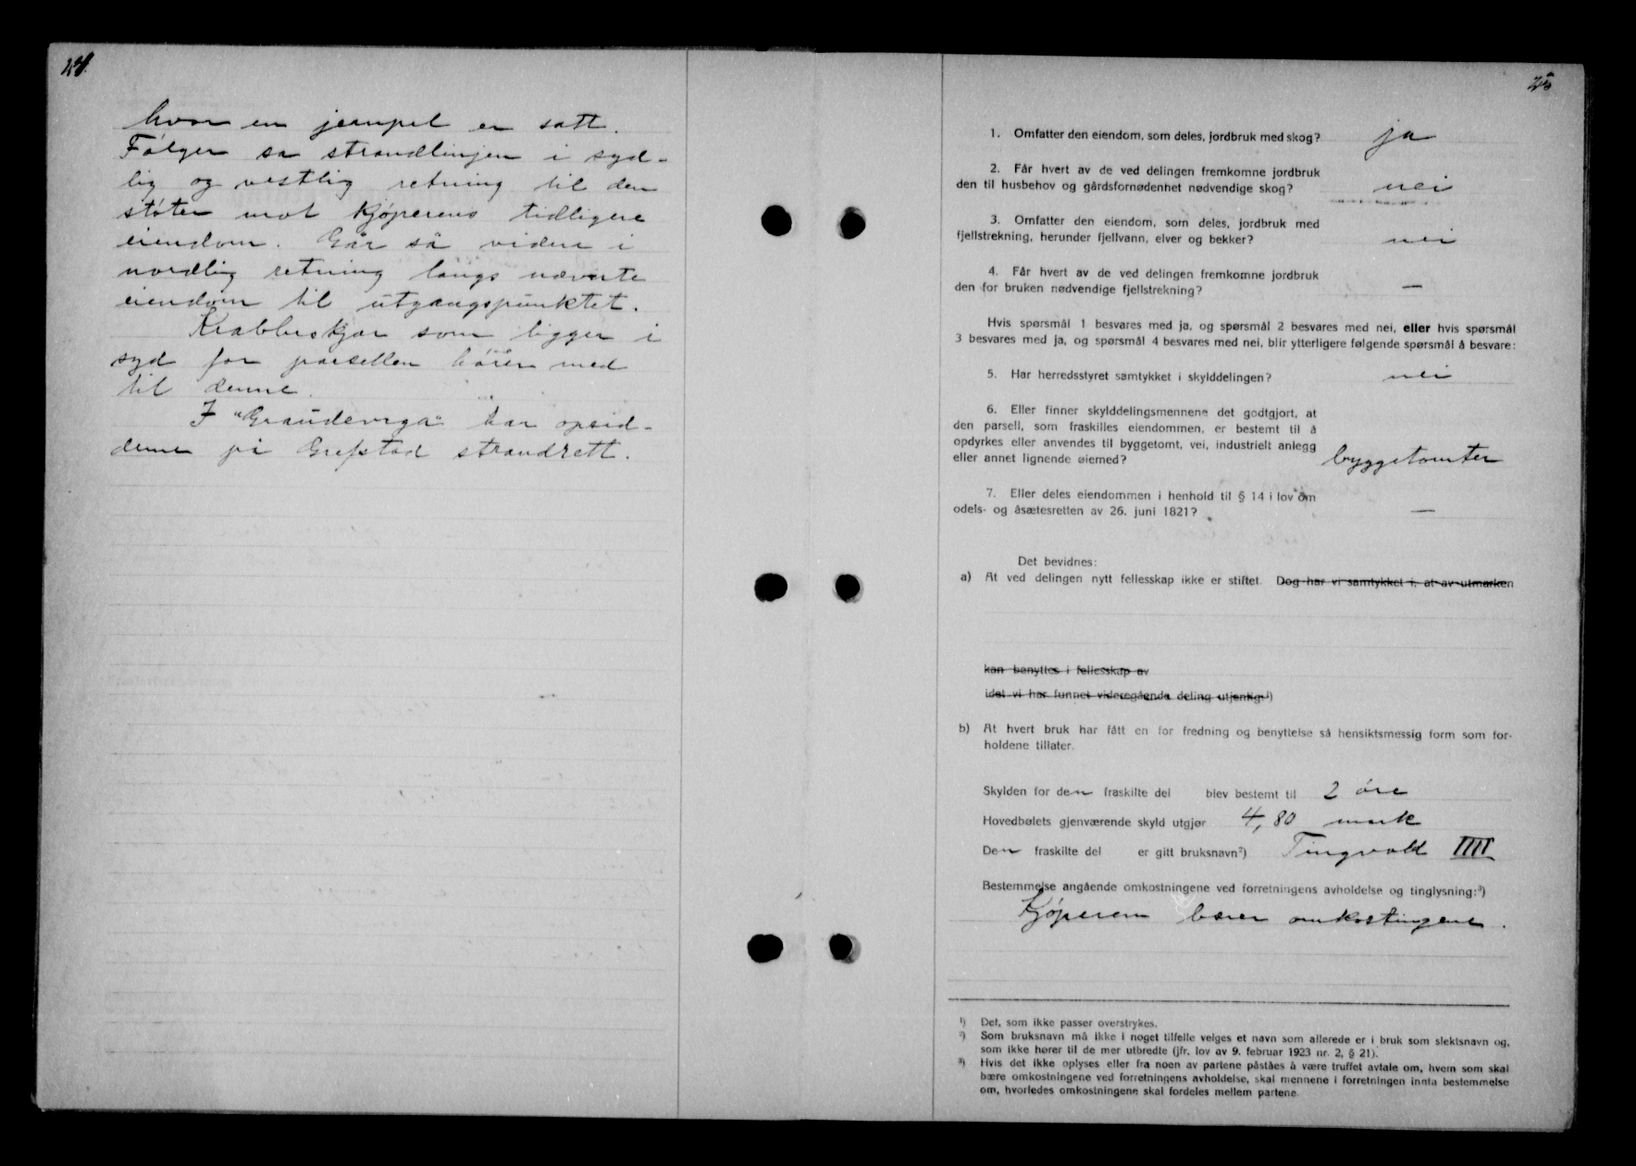 24.
hvor en jernpel er satt.
Følger så strandlinjen i syd-
lig og vestlig retning til den
støter mot Kjøperens tidligere
eiendom. Går så videre i
nordlig retning langs nævnte
eiendom til utgangspunktet.
Krabbeskjær som ligger i
syd for parsellen hører med
til denne.
I "Grandevigå" har opsid-
derne på Grefstad strandrett.
25
1. Omfatter den eiendom, som deles, jordbruk med skog? ja
2. Får hvert av de ved delingen fremkomne jordbruk
den til husbehov og gårdsfornødenhet nødvendige skog? nei
3. Omfatter den eiendom, som deles, jordbruk med
fjellstrekning, herunder fjellvann, elver og bekker? nei
4. Får hvert av de ved delingen fremkomne jordbruk
den for bruken nødvendige fjellstrekning? —
Hvis spørsmål 1 besvares med ja, og spørsmål 2 besvares med nei, eller hvis spørsmål
3 besvares med ja, og spørsmål 4 besvares med nei, blir ytterligere følgende spørsmål å besvare:
5. Har herredsstyret samtykket i skylddelingen? nei
6. Eller finner skylddelingsmennene det godtgjort, at
den parsell, som fraskilles eiendommen, er bestemt til å
opdyrkes eller anvendes til byggetomt, vei, industrielt anlegg
eller annet lignende øiemed? byggetomter
7. Eller deles eiendommen i henhold til § 14 i lov om
odels- og åsætesretten av 26. juni 1821? —
Det bevidnes:
a) At ved delingen nytt fellesskap ikke er stiftet. Dog har vi samtykket i, at av utmarken
kan benyttes i fellesskap av
idet vi har funnet videregående deling utjenlig.¹)
b) At hvert bruk har fått en for fredning og benyttelse så hensiktsmessig form som for-
holdene tillater.
Skylden for den fraskilte del blev bestemt til 2 øre
Hovedbølets gjenværende skyld utgjør 4,80 mark
Den fraskilte del er gitt bruksnavn²) Tingvold IIII
Bestemmelse angående omkostningene ved forretningens avholdelse og tinglysning:³)
Kjøperen bærer omkostingene.
¹) Det, som ikke passer overstrykes.
²) Som bruksnavn må ikke i noget tilfelle velges et navn som allerede er i bruk som slektsnavn og,
som ikke hører til de mer utbredte (jfr. lov av 9. februar 1923 nr. 2, § 21).
³) Hvis det ikke oplyses eller fra noen av partene påståes å være truffet avtale om, hvem som skal
bære omkostningene ved forretningens avholdelse, skal mennene i forretningen innta bestemmelse
om, hvorledes omkostningene skal fordeles mellem partene.